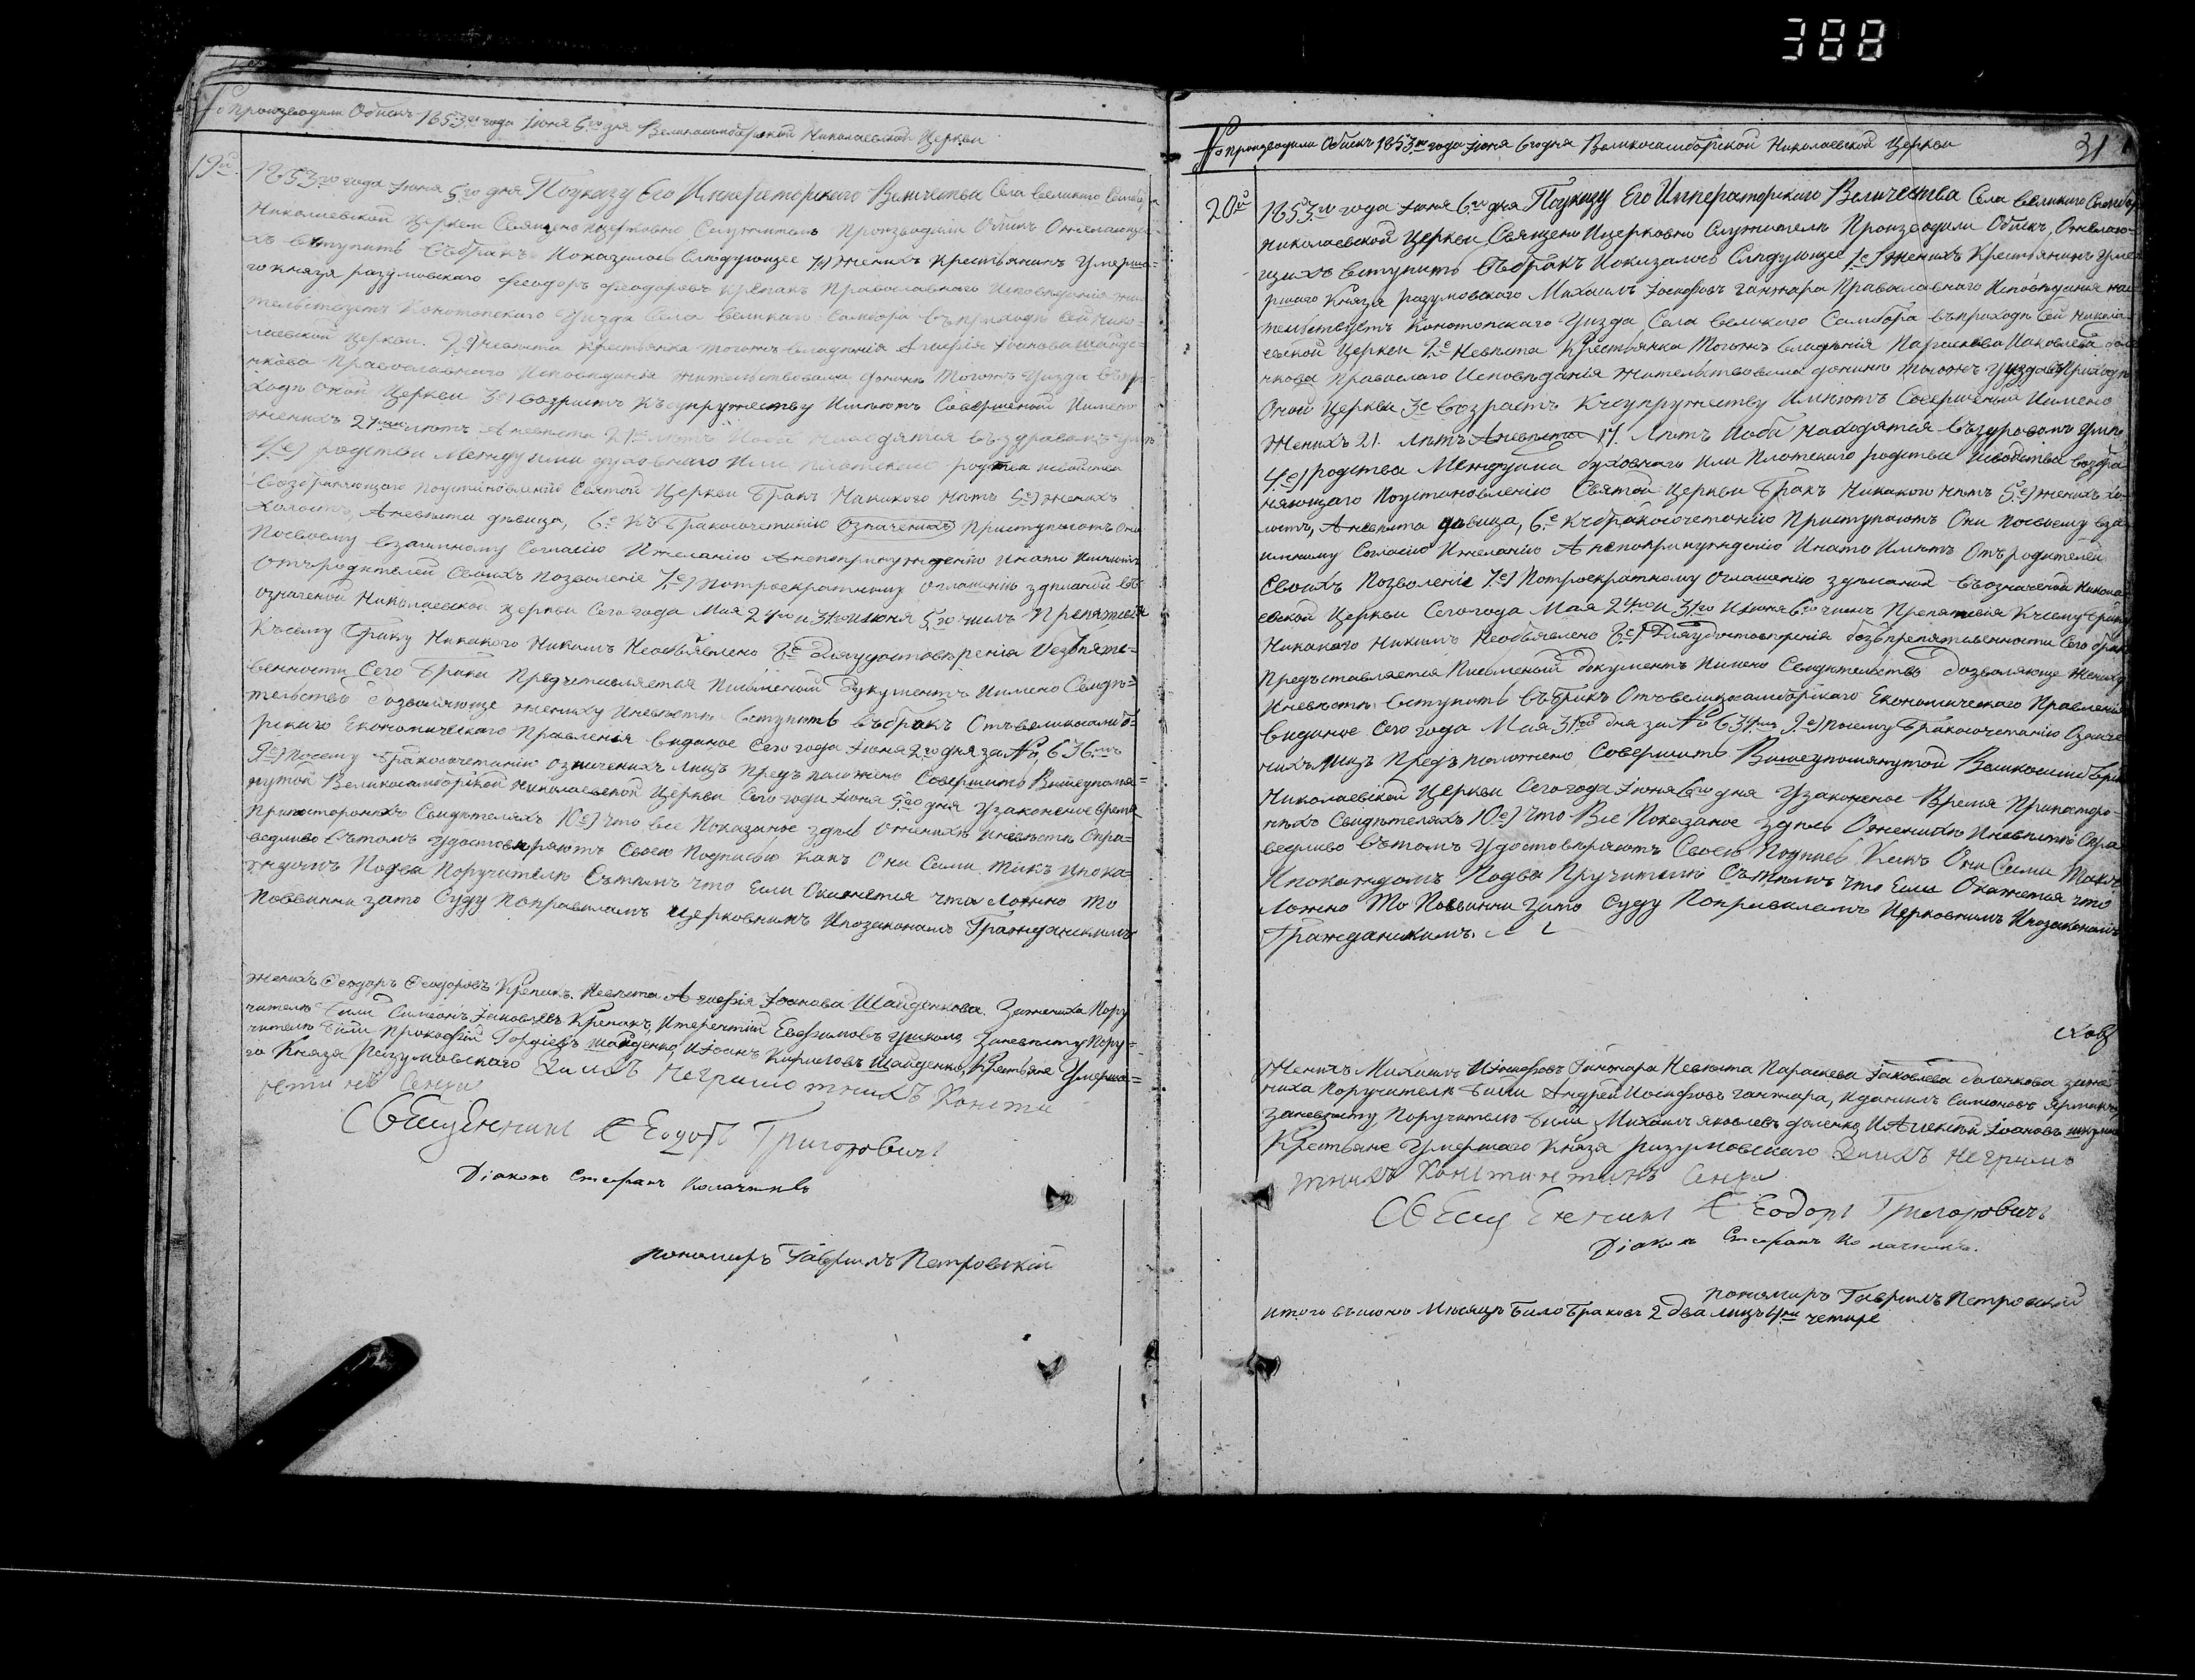 388
№ Производили Обыскъ 1853го года Июня 5го дня Великосамборской Николаевской Церкви
19й
1853го года Июня 5го дня По указу Его Императорскаго Величества Села Великого Самбора
Николаевской Церкви Священо и церковно Служители Производили Обыскъ О желающи-
хъ вступить въ бракъ и оказалось Следующее 1е) женихъ Крестьянинъ Умерша-
го князя разумовскаго феодоръ феодоровъ крепакъ Православнаго Исповеданiя жи-
тельствуетъ Конотопскаго Уизда Села великаго Самбора въ приходе Сей Нико-
лаевской Церкви. 2е) невеста крестьянка тогожъ владенiя Агафiя Иоанова Шайде-
нкова Православнаго Исповеданiя жительствовала донине Тогожъ Уизда въ при-
ходе Оной Церкви 3е) возрастъ къ супружеству Имеютъ Совершеной Имено
женихъ 21 летъ А невеста 21 летъ И оба находятся въ здравомъ уме
4е) родства Между ими духовнаго Или плотскаго родства и свойства
возбраняющаго по установленiю Святой Церкви бракъ Никакого нетъ 5е) женихъ
холостъ, А невеста девица, 6е къ бракосочетанiю Означенихъ Приступаютъ Они
по своему взаимному Согласiю И желанiю А не по принужденiю и на то Имеютъ
отъ родителей Своихъ позволенiе 7е) По троекратному Оглашенiю зделаной въ
означеной Николаевской церкви Сего года Мая 24го и 31го и июня 5го чиселъ Препятствiя
Къ сему браку Никакого Никемъ Необъявлено 8е Для удостоверенiя безпрепятс-
венности Сего Брака Представляется Письменый документъ Имено Свиде-
тельство дозволяюще жениху И невесте вступить въ бракъ Отъ великосамбо-
рскаго Економическаго Правленiя виданое Сего года Июня 2го дня за № 636мъ
9е) По сему бракосочетанiю означенихъ лицъ предположено Совершить Вишеупомя-
нутой Великосамборской Николаевской Церкви Сего года Июня 5го дня Узаконеное время
При постороннихъ Свидетеляхъ 10е) что все Показаное здесь О женихе И невесте Спра-
ведливо въ томъ удостоверяютъ Своею Подписью какъ Они Сами Такъ и по ка-
ждомъ По два Поручителе Съ темъ что Если Окажется что Ложно то
Повинни за то Суду По правиламъ Церковнимъ И по законамъ Гражданскимъ
женихъ Феодоръ Феодоровъ Крепакъ. Невеста Агафiя Иоанова Шайденкова. За жениха Пору
чителе били Симеонъ Яковлевъ Крепакъ, И терентiй Евфимовъ за невесту Пору-
чителе били Прокофiй Гордiевъ Шайденко, И Иоанъ Кириловъ Шайденко, Крестьяне Умерша-
го Князя Разумовскаго За ихъ неграмотнихъ Консти
нтинъ Сенка
Священникъ Феодоръ Григоровичъ
Дiаконъ Стефанъ Колачникъ
пономаръ Гаврiилъ Петровскiй
№ Производили Обыскъ 1853го года Июня 6го дня Великосамборской Николаевской Церкви
31
20й
1853го года Июня 6го дня По указу Его Императорскаго Величества Села Великого Самбора
Николаевской Церкви Священо И церковно Служители Производили Обыскъ, О желаю-
щихъ вступить въ бракъ И оказалось Следующее 1е) женихъ Крестьянинъ Уме
ршаго Князя разумовскаго Михаилъ Иосифовъ ганжара Православнаго Исповеданiя жи-
тельствуетъ Конотопскаго Уизда Села великаго Самбора въ приходе Сей Никола-
евской Церкви 2е Невеста Крестьянка Тогожъ владенiя Параскева Иаковлева доле
нкова православаго Исповеданiя жительствовала донине тогожъ Уизда въ Приходе
Оной Церкви 3е возрастъ Къ супружеству Имеютъ Совершеный Имено
Женихъ 21. Летъ А невеста 17. Летъ И оба находятся въ здравомъ уме
4е) родства Между ими духовнаго Или Плотскаго родства И свойства возбра
няющаго По установленiю Святой Церкви бракъ Никакого нетъ 5е) женихъ хо-
лостъ, А невеста девица, 6е Къ бракосочетанiю Приступаютъ Они по своему вза
имному Согласiю И желанiю А не по принужденiю И на то Имеютъ Отъ родителей
Своихъ Позволенiе 7е) По троекратному Оглашенiю зделаной въ означеной Никола
евской Церкви Сего года Мая 24го и 31го И Июня 6го чиселъ Препятствiя Къ сему браку
Никакого Никемъ Необъявлено 8е) Для удостоверенiя безъ препятственности Сего брака
Предъставляется Письменый документъ Имено Свидетельство дозволяюще жениху
И невесте вступить въ бракъ Отъ великосамборскаго Економическаго Правленiя
виданое Сего года Мая 31го дня за № 634мъ 9е) По сему бракосочетанiю Означе
нихъ лицъ предъположено Совершить Вишеупомянутой Великосамборской
Николаевской Церкви Сего года Июня 6го дня Узаконеное Время При посторо-
ннихъ Свидетеляхъ 10е) что Все Показаное здесь О женихе И невесте Спра
ведливо въ томъ Удостоверяютъ Своею Подписю Какъ Они Сами Такъ
И по каждомъ По два Пручителе Съ темъ что Если Окажется что
Ложно То Повинни за то Суду По правиламъ Церковнимъ И по законамъ
Гражданскимъ.
Женихъ Михаилъ Иосифовъ Ганжара Невеста Параскева Яковлева доленкова за же-
ниха Поручителе били Андрей Иосифовъ ганжара, И данiилъ Симеоновъ
за невесту Поручителе били Михаилъ яковлевъ доленко И Алексей Иоановъ
Крестьяне Умершаго Князя разумовскаго За ихъ неграмо
тнихъ Константинъ Сенка
Священникъ Феодоръ Григоровичъ
Дiаконъ Стефанъ Колачникъ.
пономаръ Гаврiилъ Петровскiй
итого въ июне Месяце било браковъ 2 два лицъ 4ри четире